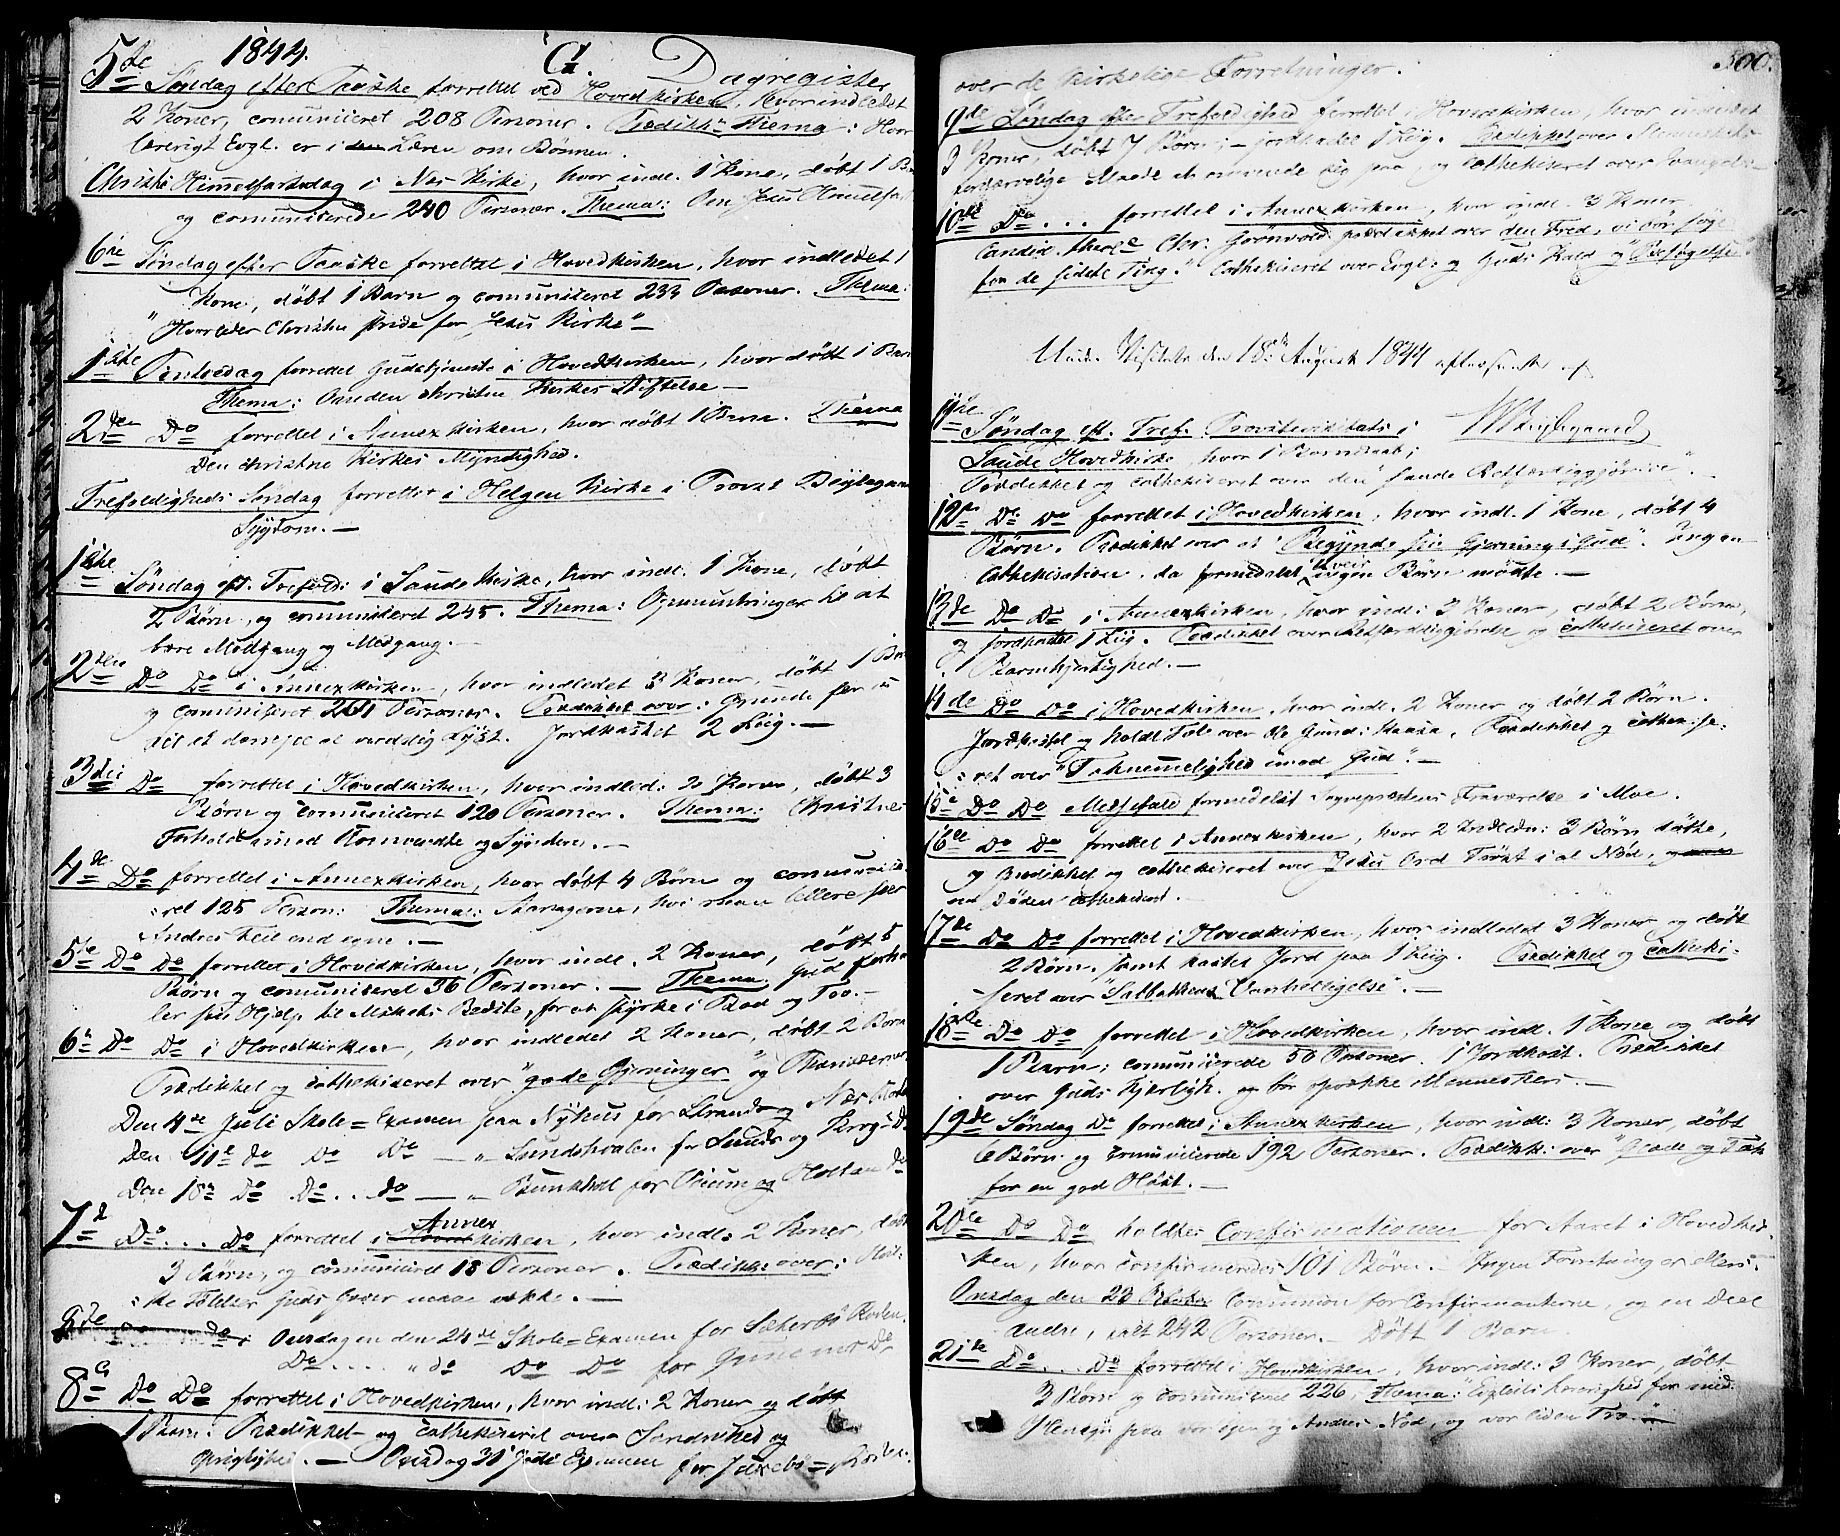 1844. C. Dagregister
5te Søndag efter Paaske forrettet ved Hovedkirken, hvor indledet
2 Koner, comuniceret 208 Personer. Prædikk: Thema: Hvor
lærerigt Evgl. er i Læren om Bønnen.
Christi Himmelfartsdag i Næs Kirke, hvor indl. 1 Kone, døbt 1
og comunicerede 240 Personer. Thema: Om Jesu Himmelfa
6te Søndag efter Paaske forrettet i Hovedkirken, hvor indledet 1
Kone, døbt 1 Barn og comuniceret 233 Personer. Thema:
for Jesus Kirke"
1ste Pintsedag forrettet Gudstjeneste i Hovedkirken, hvor døbt 1 Barn
Thema: Aanden christen Kirkes Stiftelse —
2den Do forrettet i Annexkirken, hvor døbt 1 Barn. Thema
Den christne Kirkes Myndighed.
Trefoldigheds: Søndag forrettet i Helgen Kirke i Provst
Sygdom. —
1ste Søndag eft. Trefold: i Saude Kirke, hvor indl. 1 Kone, døbt
2 Børn, og comuniceret 245. Thema: Opmuntringer til at
bære Modgang og Medgang. —
2den Do Do i Annexkirken, hvor indledet 3 Koner, døbt 1
og comuniceret 261 Personer. Prædikket over: Grunde for
til at dæmpe al verdslig Lyst. Jordkastet 2 Liig. —
3die Do forrettet i Hovedkirken, hvor indled: 2 Koner, døbt 3
Børn og comuniceret 120 Personer. Thema: Christnes
Forhold imod Omvendte og Syndere. —
4de Do forrettet i Annexkirken, hvor døbt 4 Børn og comunice
:ret 125 Person: Thema: hvi man sees
Andres Feil end egne. —
5te Do Do forrettet i Hovedkirken, hvor indl. 2 Koner, døbt 5
Børn og comuniceret 36 Personer. — Thema: Gud
ler sin Hjelp til for at styrke i Bod og Troe. —
6te Do Do i Hovedkirken, hvor indledet 2 Koner, døbt 2 Børn
Prædikket og cathekiseret over "gode Gjerninger" og
Den 4de Juli Skole=Examen paa Nyhus for Strands og Næs
Den 11te do Do Do — " Lundshvalen for Sauds og
Den 18de Do Do .. do — " for og Holtan do
7de Do ... Do forrettet i Annexkirken, hvor indl: 2 Koner, døbt
3 Børn, og comuniceret 18 Personer. Prædikke over:
:ke Følelser Guds Gaver maae vække. —
8de Do: Onsdagen den 24de Skole=Examen for
Do .... " do Do Do for Do
8de Do Do forrettet i Hovedkirken, hvor indl: 2 Koner og døbt
1 Barn: Prædikket og cathekiseret over Sandruhed og
Oprigtighed. — Onsdag 31 Juli Examen for
300.
over de kirkelige Forretninger.
9de Søndag efter Trefoldighed forrettet i Hovedkirken, hvor indledet
3 Koner, døbt 7 Børn; — jordkastet 1 Liig. Prædikket over Menneskets
fordærvelige Maade at anvende sig paa, og cathekiseret over Evangeli
10de Do ... forrettet i Annexkirken, hvor indl. 3 Koner.
Candid. theol. Chr. prædikket over "den Fred, vi bør søge
fra de sidste Ting." Cathekiseret over Evgl: og Guds Kald og "Besøgelse"
Under Visitats den 18de August 1844
11te Søndag eft. Tref. Provstevisitats i
Saude Hovedkirke, hvor 1 Barndaab;
Prædikket og cathekiseret over den "sande Retfærdiggjørelse".
12te Do Do forrettet i Hovedkirken, hvor indl. 1 Kone, døbt 4
Børn. Prædikket over at "Begynde sin Gjerning i Gud". Ingen
Cathekisation, da formedelst ingen Børn mødte. —
13de Do Do i Annexkirken, hvor indl: 3 Koner, døbt 2 Børn,
og jordkastet 1 Liig. Prædikket over Retfærdiggjørelse og cathekiseret over
Barmhjertighed. —
14de Do Do i Hovedkirken, hvor indl. 2 Koner og døbt 2 Børn.
Jordkastet og holdt Tale over Ole Gund: Prædikket og cathekise-
:ret over "Taknemmelighed imod Gud". —
15de Do Do Messefald formedelst Sognepræstens Fraværelse i Moe.
16de Do Do forrettet i Annexkirken, hvor 2 Indledn: 3 Børn døbte,
og Prædikket og cathekiseret over Jesus Ord Trøst i al Nød,
ved Døden cathekiseret.
17de Do Do forrettet i Hovedkirken, hvor indledet 3 Koner og døbt
2 Børn, samt kastet Jord paa 1 Liig. Prædikket og catheki-
seret over "Sabbathens Vanhelligelse". —
18de Do Do forrettet i Hovedkirken, hvor indl. 1 Kone og døbt
1 Barn; comunicerede 50 Personer. 1 Jordkast. Prædikket
over Guds Kjærligh. Mennesker. —
19de Søndag Do forrettet i Annexkirken, hvor indl: 3 Koner, døbt
6 Børn og comunicerede 192 Personer. Prædikk: over "Glæde og Tak
for en god Høst. —
20de Do Do holdtes Confirmationen for Aaret i Hovedkir-
ken, hvor confirmeredes 101 Børn. — Ingen Forretning ellers.
Onsdag den 23 Oktober Comunion for Confirmanterne, og en Deel
Andre, ialt 242 Personer. — Døbt 1 Barn.
21de Do ... Do forrettet i Hovedkirken, hvor indl: 3 Koner, døbt
3 Børn og comuniceret 226. Thema:
Hensyn paa vor egen og Andres Nød, og vor Tro."